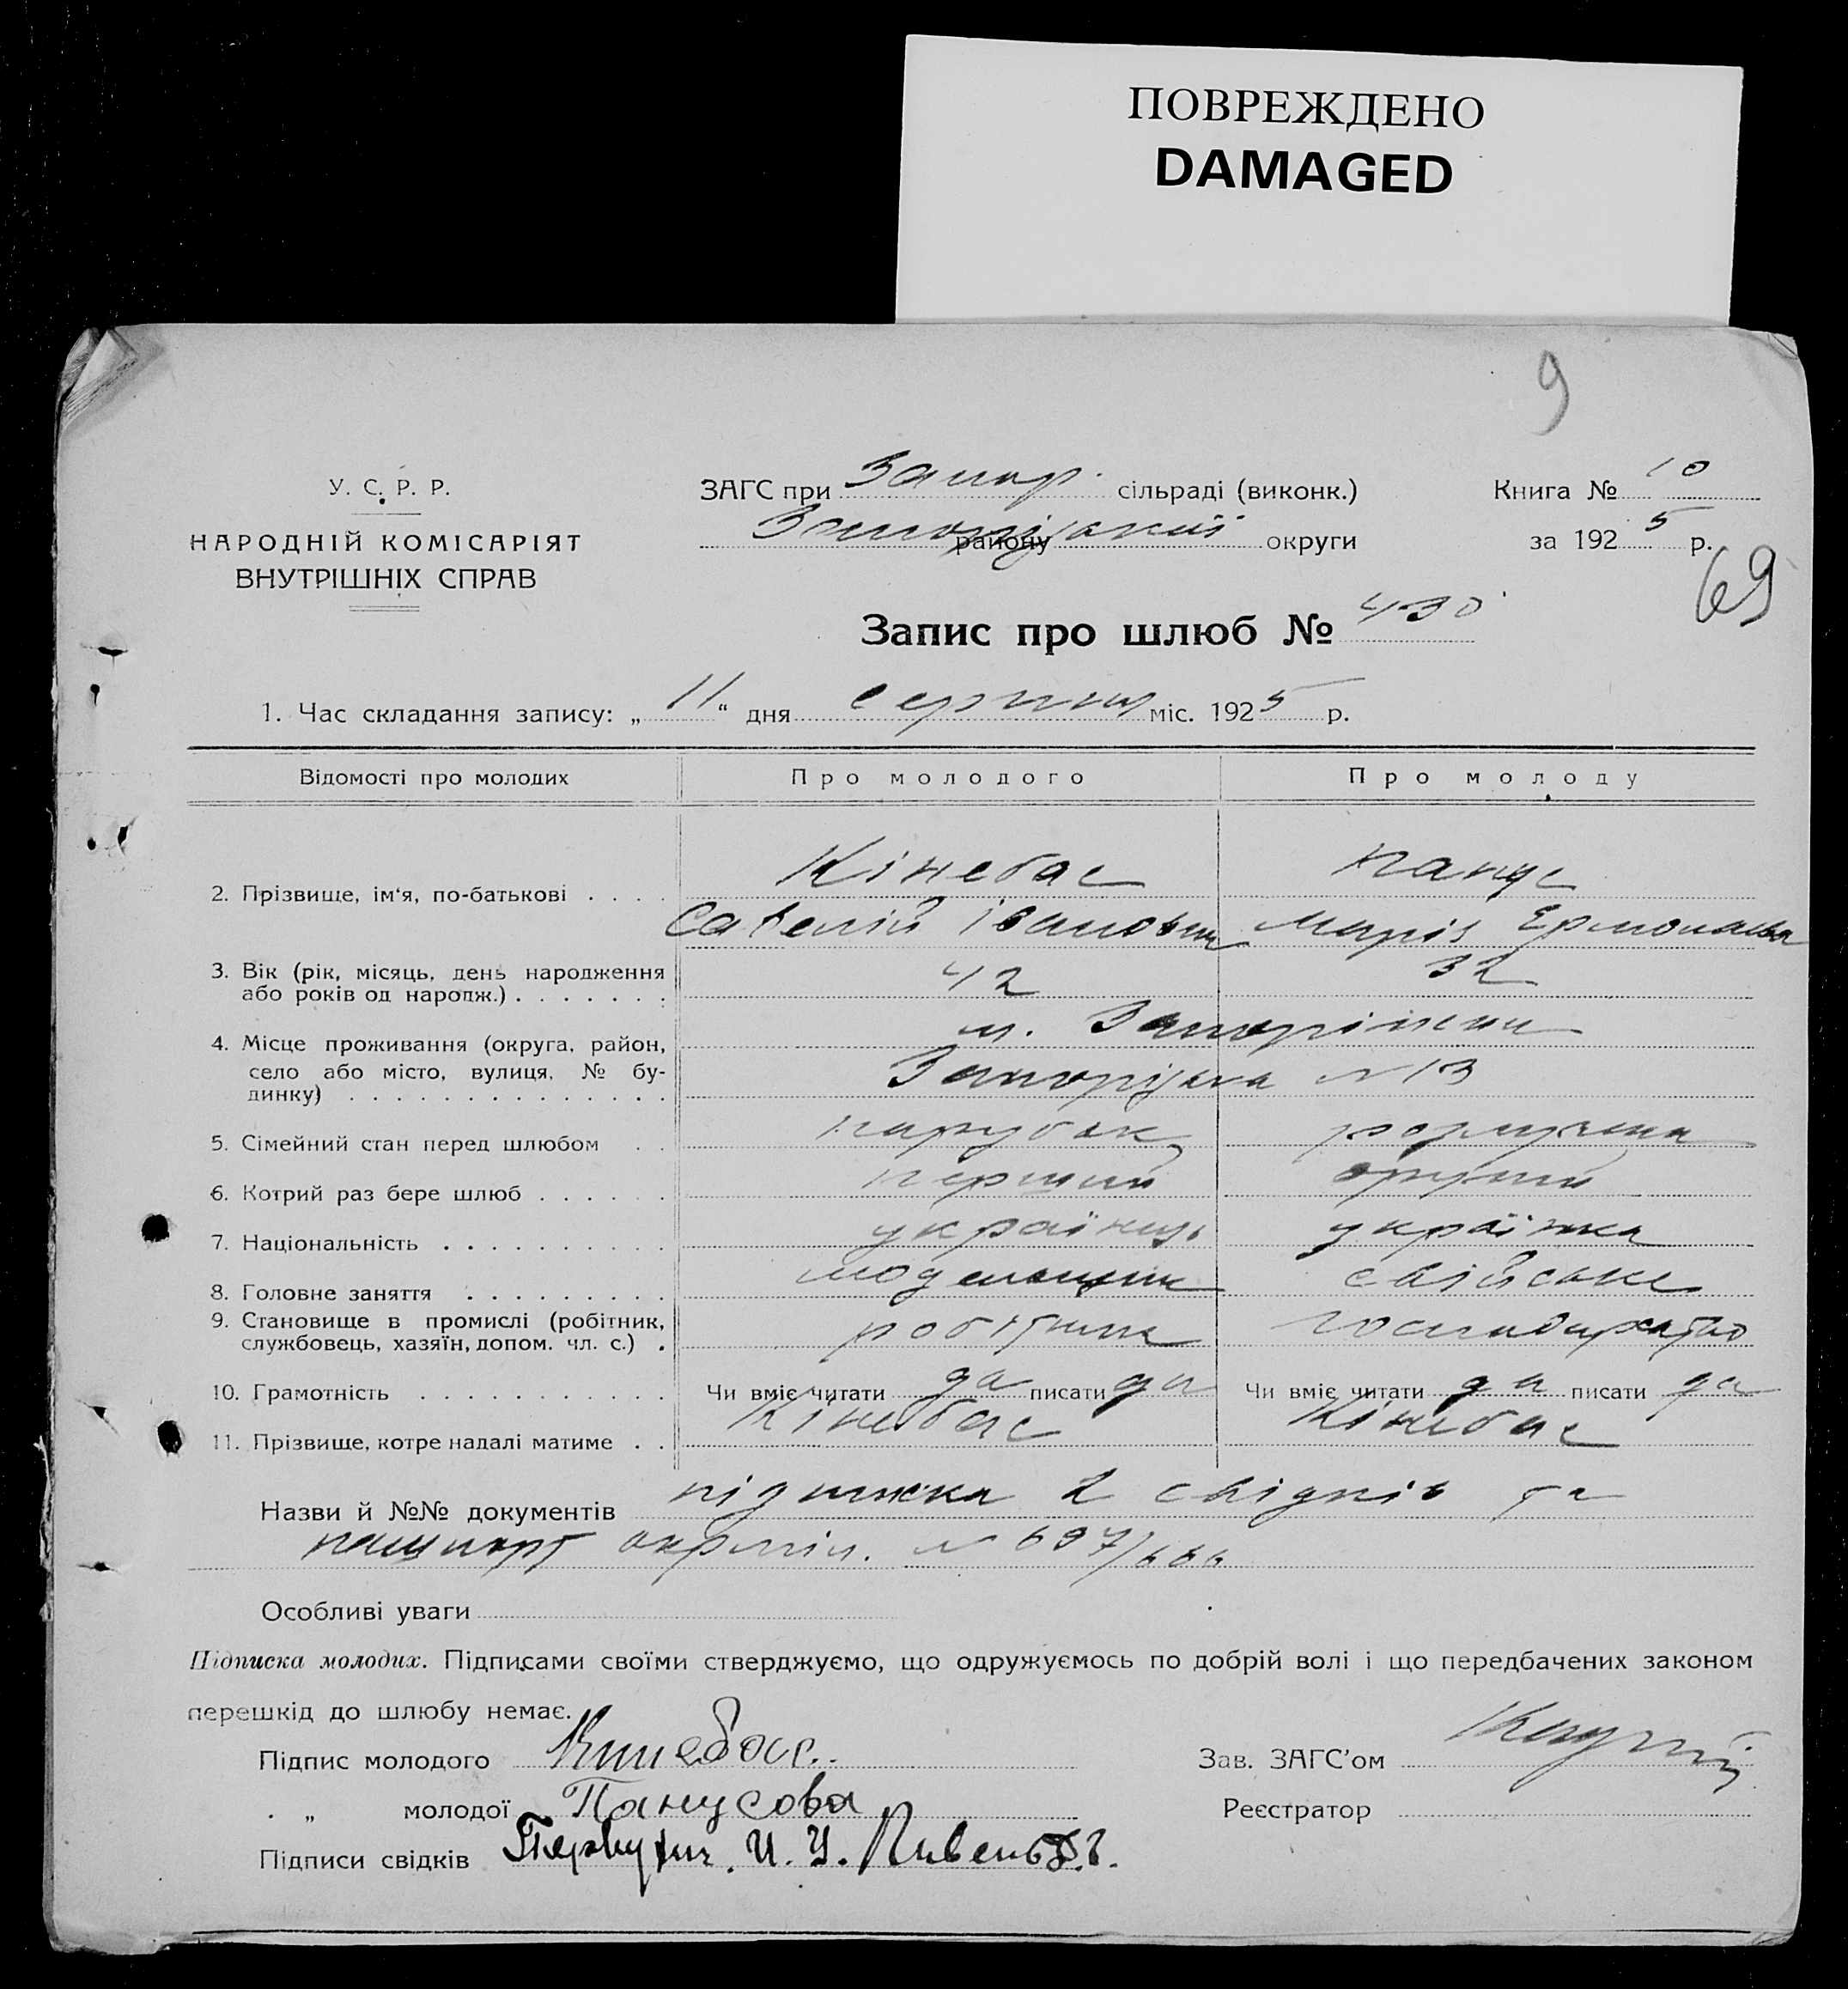 ПОВРЕЖДЕНО
DAMAGED
9
У. С. Р. Р.
НАРОДНІЙ КОМІСАРІЯТ
ВНУТРІШНІХ СПРАВ
ЗАГС при Запор. сільраді (виконк.)
району округи
Книга № 10
за 1925 р.
69
Запис про шлюб № 430
1. Час складання запису: „ 11 “ дня серпня міс. 1925 р.
Відомості про молодих Про молодого Про молоду
2. Прізвище, ім‘я, по-батькові . . . .
Кінебас
Савелій Іванович Марія
3. Вік (рік, місяць, день народження
або років од народж.) . . . . . . .
42 32
4. Місце проживання (округа, район,
село або місто, вулиця, № бу-
динку) . . . . . . . . . . . . . .
м. Запоріжжя
Запорізька № 13
5. Сімейний стан перед шлюбом . . парубок розлучена
6. Котрий раз бере шлюб . . . . . . перший другий
7. Національність . . . . . . . . . . українець українка
8. Головне заняття . . . . . . . . . модельщик свійське
9. Становище в промислі (робітник,
службовець, хазяїн, допом. чл. с.) .
робітник господарство
10. Грамотність . . . . . . . . . . . Чи вміє читати да писати да Чи вміє читати да писати да
11. Прізвище, котре надалі матиме . . Кінебас Кінебас
Назви й №№ документів підписка 2 свідків та
пашпорт № 697/
Особливі уваги
Підписка молодих. Підписами своїми стверджуємо, що одружуємось по добрій волі і що передбачених законом
перешкід до шлюбу немає.
Підпис молодого Кинебас
Зав. ЗАГС’ом
„ молодої Панусова
Реєстратор
Підписи свідків И. У. Пивень